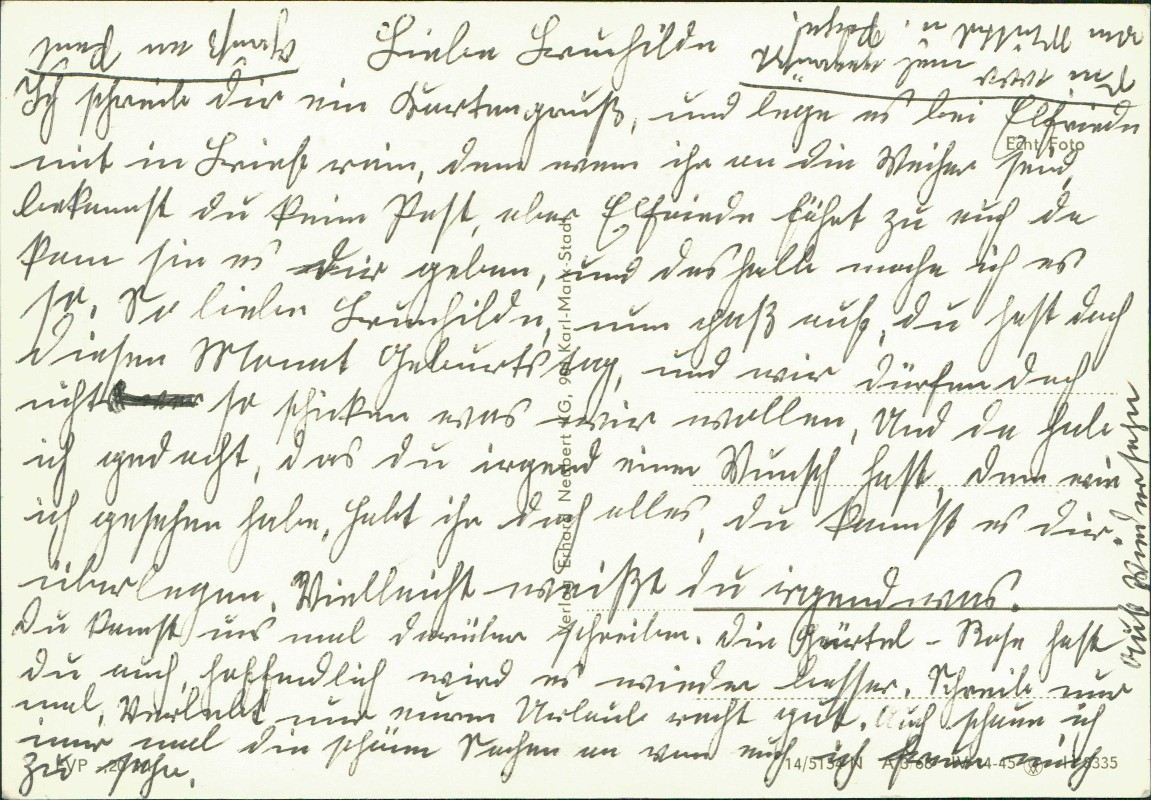 Liebe Brunhilde
Ich schreibe dir ein Kartengruß, und lege es bei Elfriede
mit in Brief rein, denn wenn ihr an die Weiher seid,
bekommst du keine Post, aber Elfriede fährt zu euch da
kann sie es Dir geben, und deshalb mache ich es
so. So liebe Brunhilde, nun paß auf, du hast doch
diesen Monat Geburtstag, und wir dürfen doch
nicht so schicken was wir wollen, Und da habe
ich gedacht, das du irgend einen Wunsch hast, denn wie
ich gesehen habe, habt ihr doch alles, du kannst es dir
überlegen. Vielleicht weißt du irgendwas.
Du kannst uns mal darüber schreiben. Die Gürtel-Rose hast
du auch, hoffendlich wird es wieder besser. Schreibe nur
mal, Verlebt nur euren Urlaub recht gut. Auch schaue ich
immer mal die schöne Sachen an von euch ich freue mich
zu sehr.
auf Wiedersehn
Echt Foto
Verlag Erhard Neubert KG, 90 Karl-Marx-Stadt
EVP